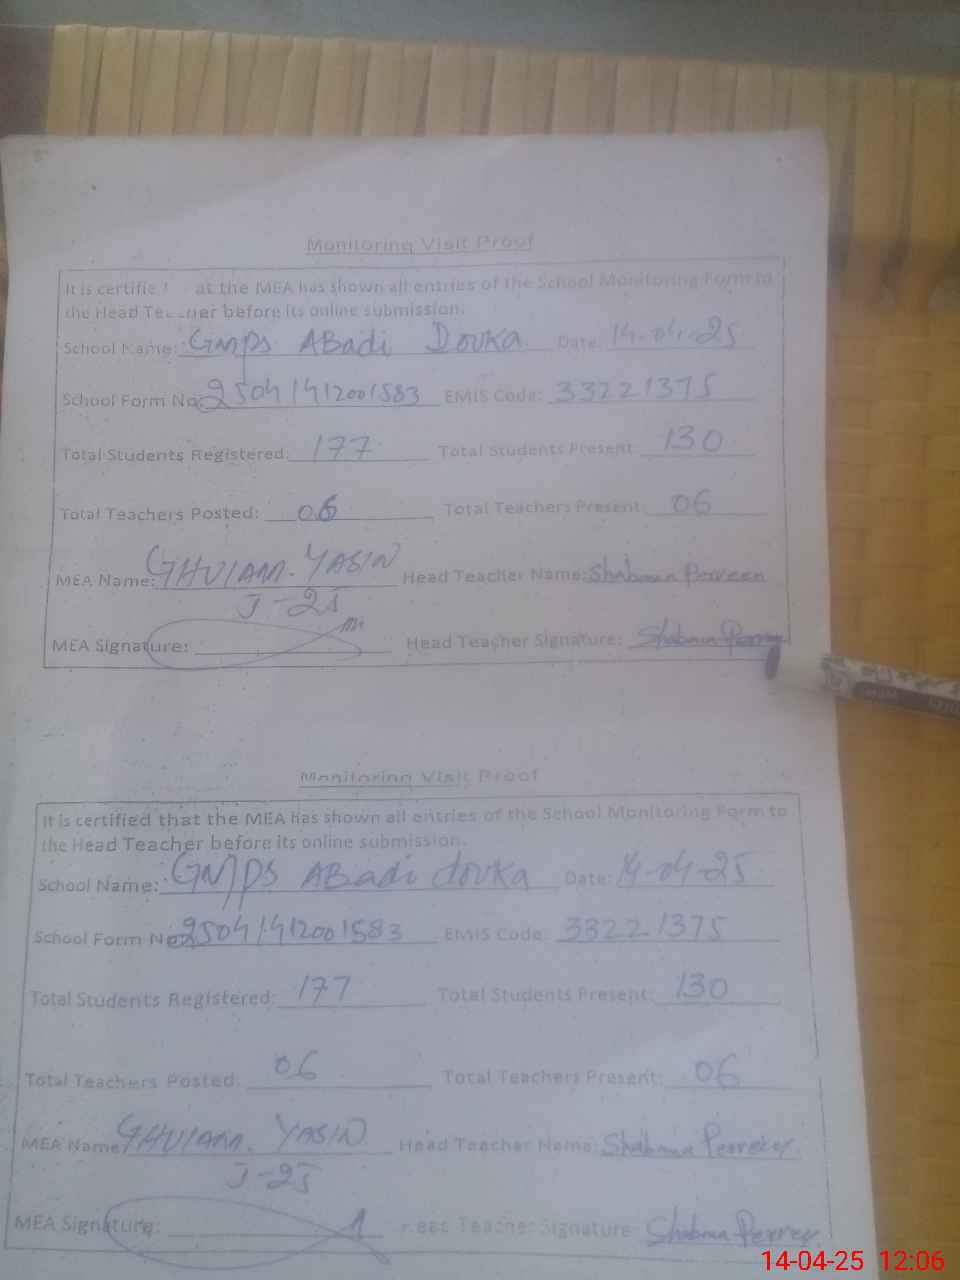 Monitoring Visit Proof
It is certifie at the MEA has shown all entries of the School Monitoring Form to
the Head Teacher before its online submission.
School Name: GMPS ABadi Dovka Date: 14-04-25
School Form No: 25041412001583 EMIS Code: 33221375
Total Students Registered: 177 Total Students Present: 130
Total Teachers Posted: 06 Total Teachers Present: 06
MEA Name: GHULAM. YASIN Head Teacher Name: Shabana Perveen
J-25
MEA Signature: Head Teacher Signature: Shabana
Monitoring Visit Proof
It is certified that the MEA has shown all entries of the School Monitoring Form to
the Head Teacher before its online submission.
School Name: GMPS ABadi dovka Date: 14-04-25
School Form No: 25041412001583 EMIS Code: 33221375
Total Students Registered: 177 Total Students Present: 130
Total Teachers Posted: 06 Total Teachers Present: 06
MEA Name: GHULAM. YASIN Head Teacher Name: Shabana
J-25
MEA Signature: Head Teacher Signature: Shabana
14-04-25 12:06